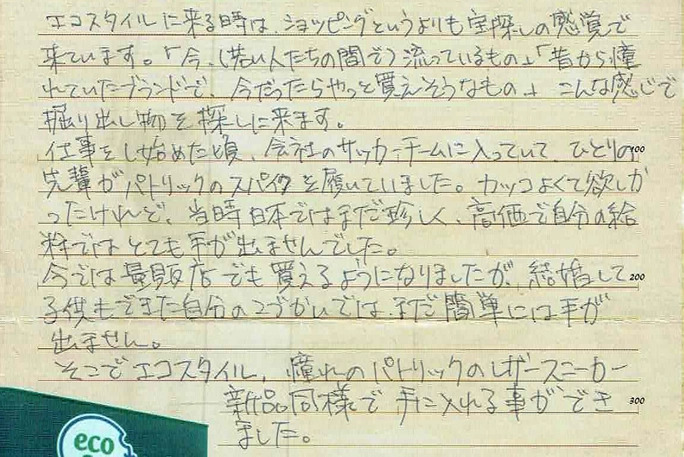 エコスタイルに来る時は、ショッピングというよりも宝探しの感覚で
来ています。「今、(若い人たちの間で)流っているもの」「昔から憧
れていたブランドで、今だったらやっと買えそうなもの」こんな感じで
掘り出し物を探しに来ます。
仕事をし始めた頃、会社のサッカーチームに入っていて、ひとりの
100
先輩がパトリックのスパイクを履いていました。カッコよくて欲しか
ったけれど、当時日本ではまだ珍しく、高価で自分の給
料ではとても手が出ませんでした。
今では量販店でも買えるようになりましたが、結婚して
200
子供もできた自分のこづかいでは、まだ簡単には手が
出ません。
そこでエコスタイル。憧れのパトリックのレザースニーカー
新品同様で手に入れる事ができ
300
ました。
eco